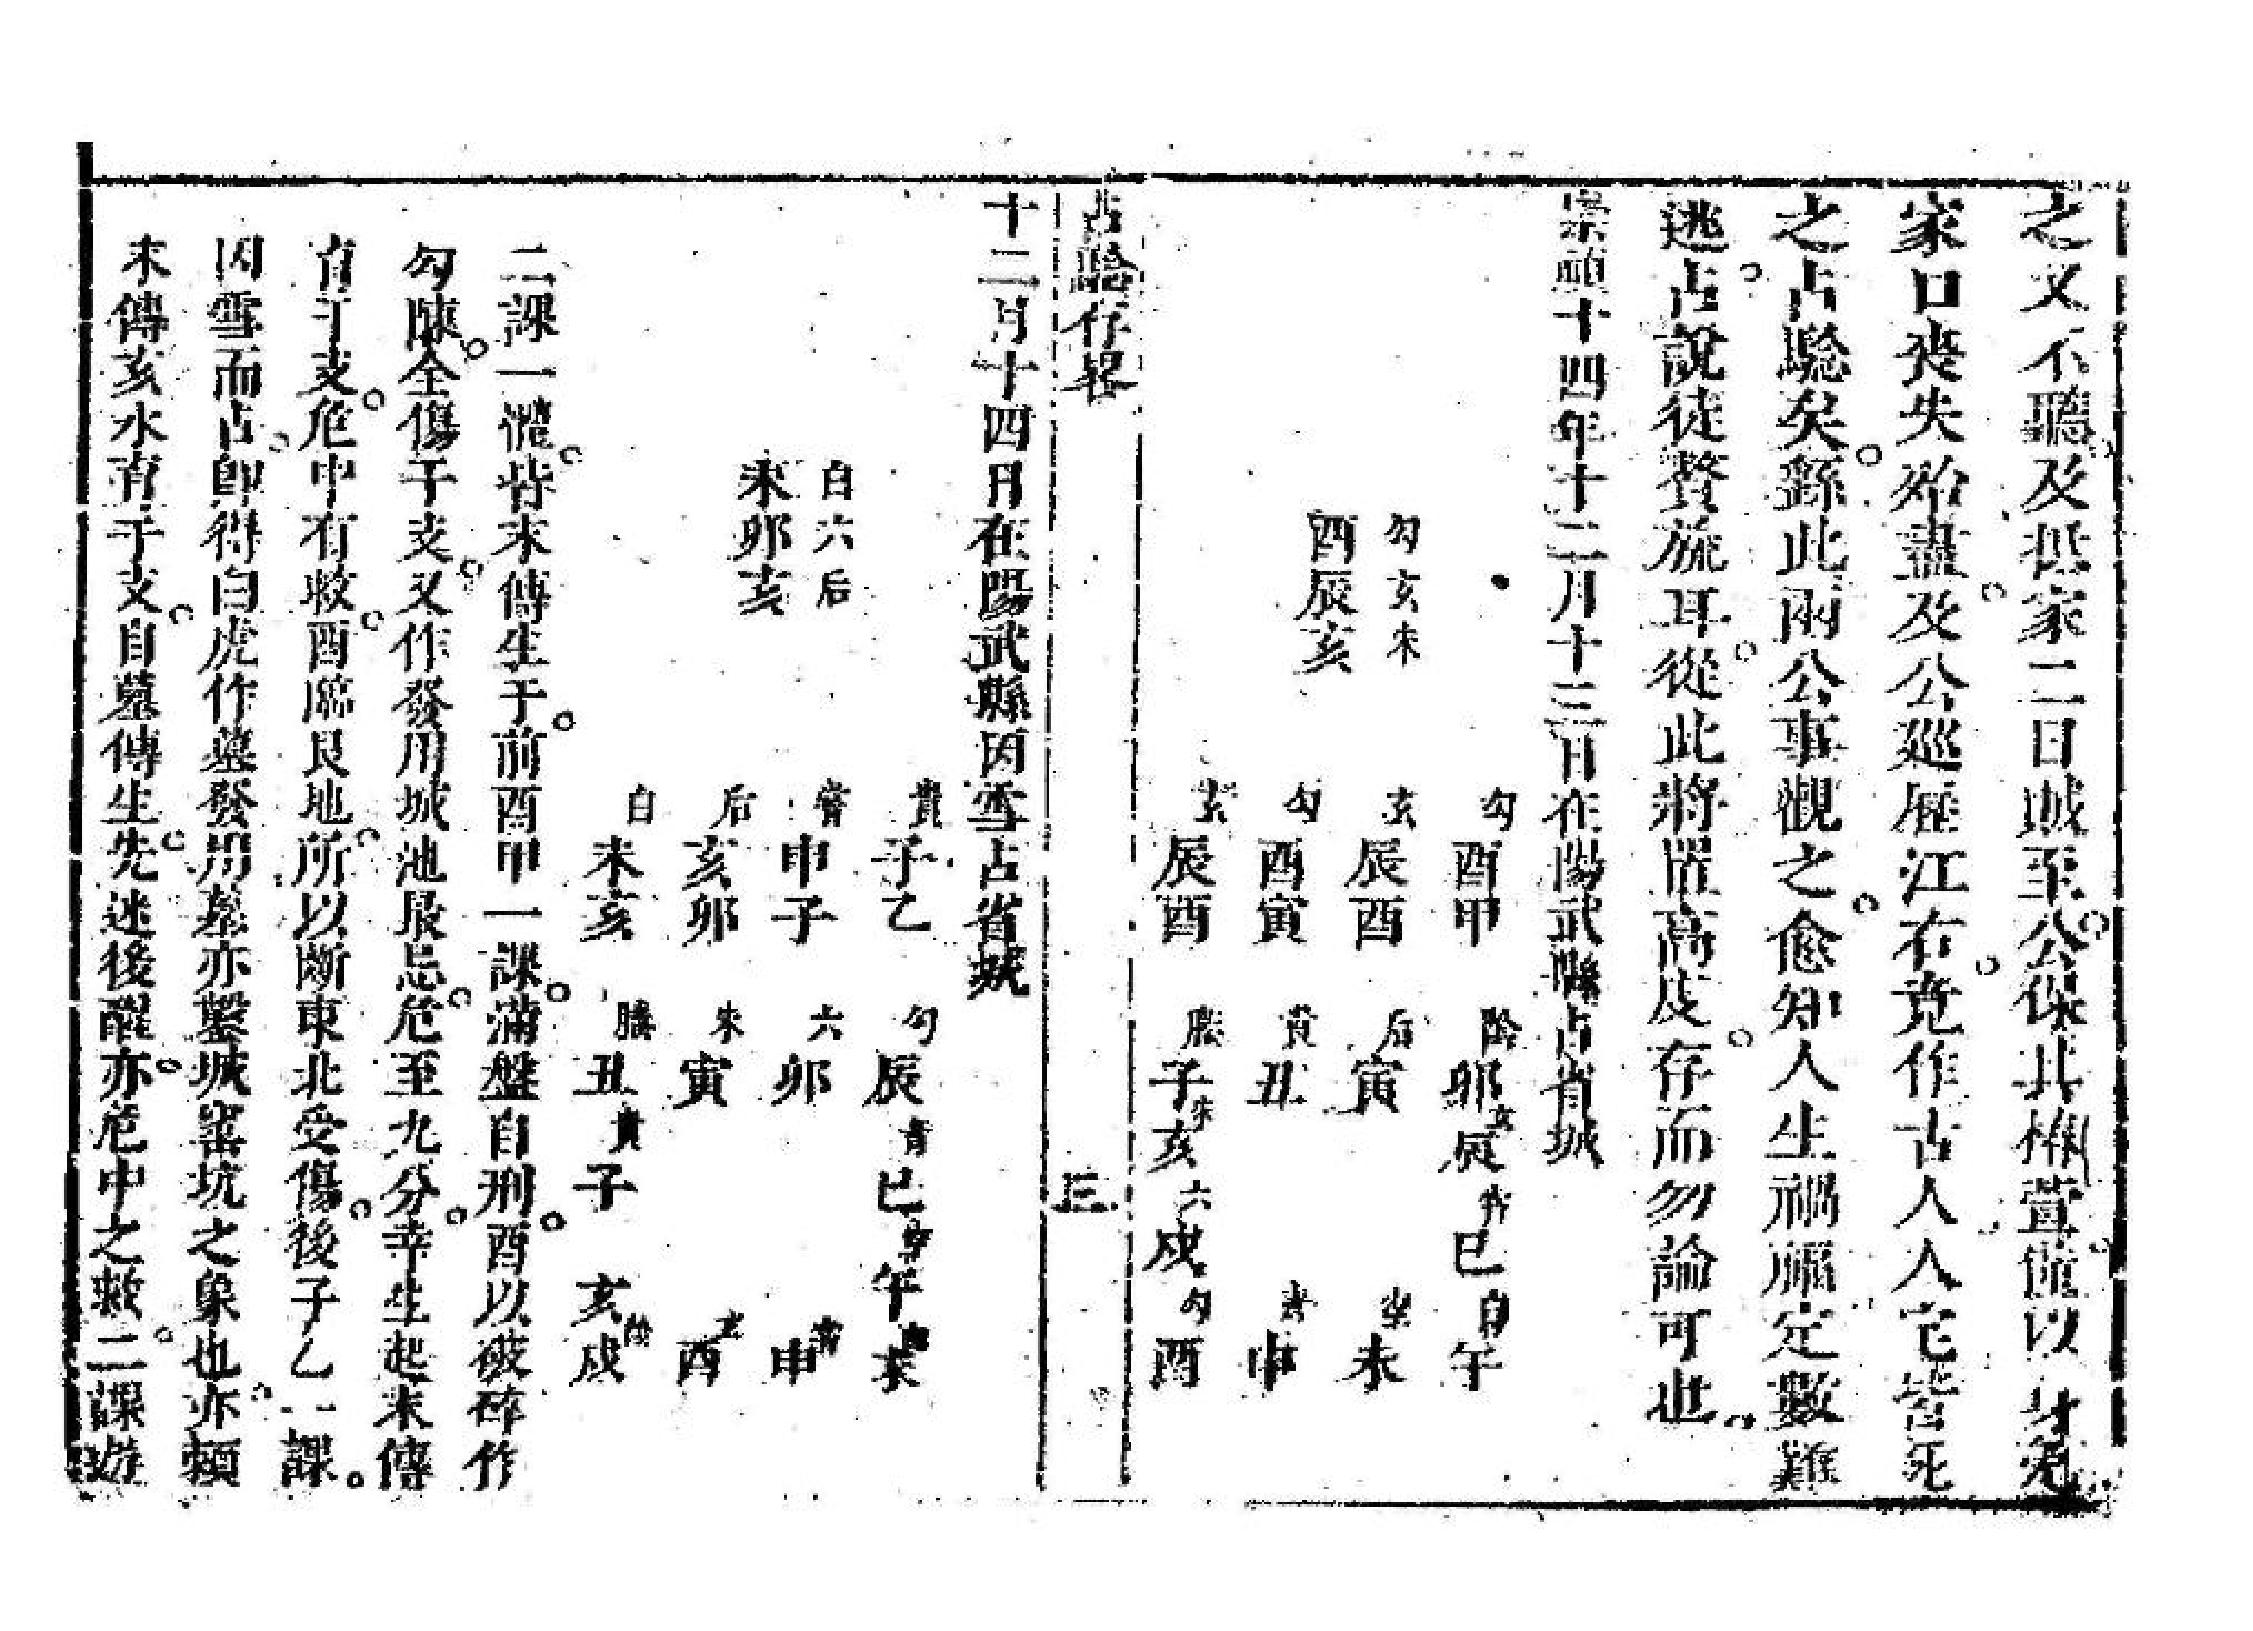 之又不聽及抵家二日賊至公保其椿萱僅以身免
家口喪失殆盡及公廵歷江右竟作古人人宅皆死
之占驗矣繇此兩公事觀之愈知人生禍福定數難
逃占說徒贅旒耳從此將罷高皮存而勿論可也
崇禎十四年十二月十三日在陽武縣占省城
勾玄朱
酉辰亥
勾 玄 勾 玄
酉甲 辰酉 酉寅 辰酉
陰卯 玄辰 常巳 白午
后寅 未
貴丑 青申
螣子 朱亥 六戌 勾酉
占驗存畧 三
十二月十四日在陽武縣因雪占省城
白六后
未卯亥
貴 常 后 白
子乙 申子 亥卯 未亥
勾辰 青巳 午 未
六卯 申
朱寅 玄酉
螣丑 貴子 亥 陰戌
二課一體皆末傳生干前酉甲一課滿盤自刑酉以破碎作
勾陳全傷干支又作發用城池最忌危至九分幸生起末傳
育干支危中有救酉臨艮地所以斷東北受傷後子乙一課
因雪而占卽得白虎作墓發用墓亦鑿城窑坑之象也亦賴
末傳亥水育干支自墓傳生先迷後醒亦危中之救二課遊